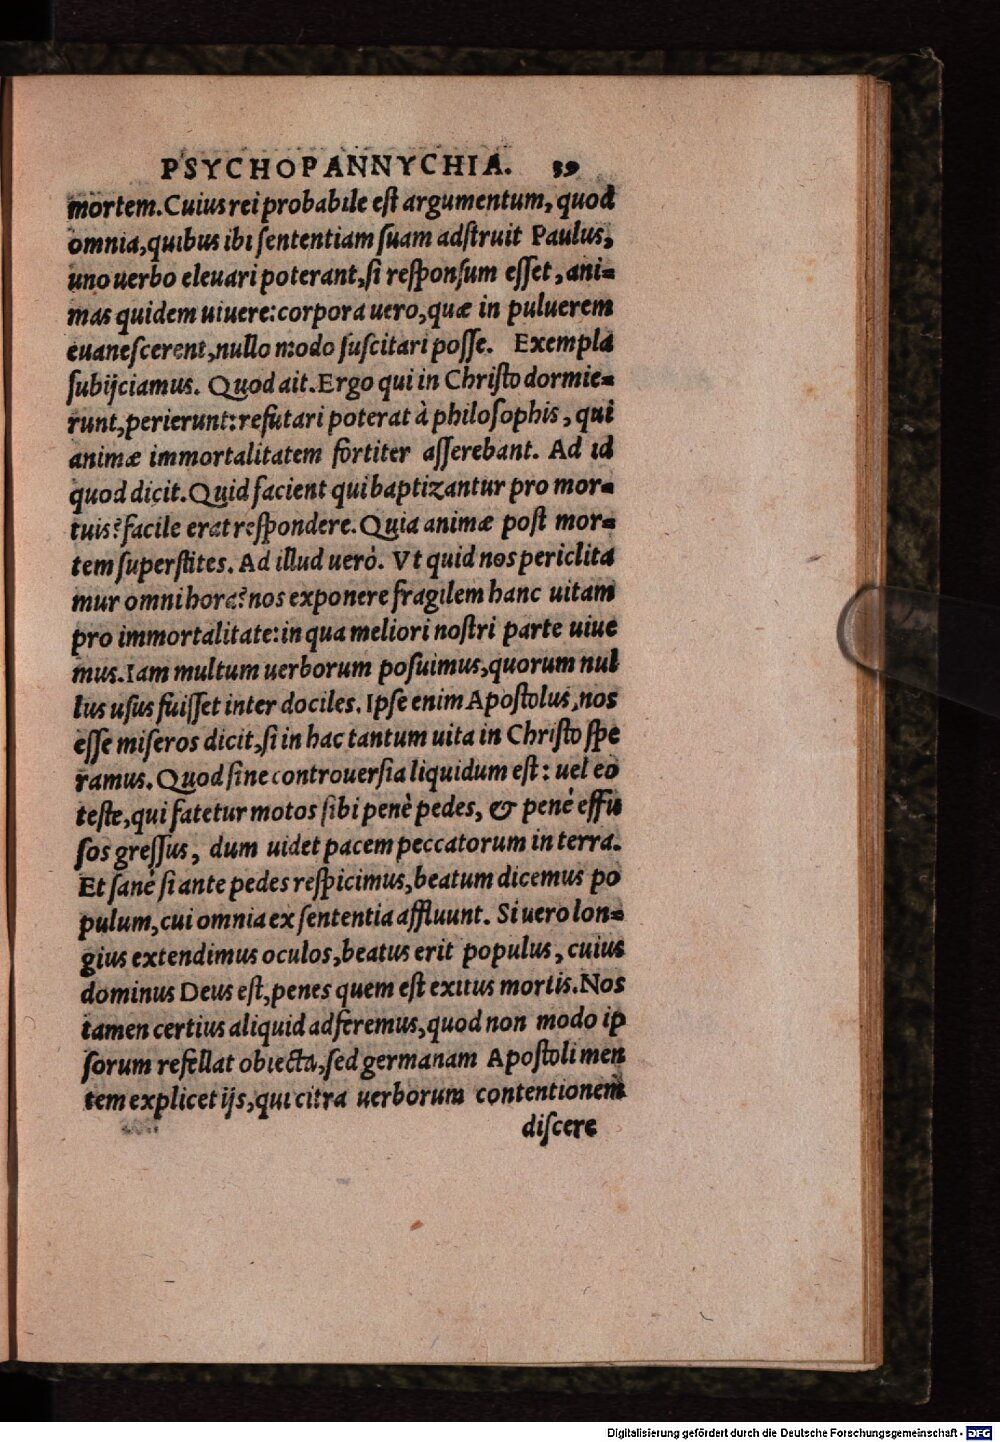 PSYCHOPANNYCHIA. 59
mortem. Cuius rei probabile est argumentum, quod
omnia, quibus ibi sententiam suam adstruit Paulus,
uno uerbo eleuari poterant, si responsum esset, ani=
mas quidem uiuere: corpora uero, quæ in puluerem
euanescerent, nullo modo suscitari posse. Exempla
subijciamus. Quod ait. Ergo qui in Christo dormie=
runt, perierunt: refutari poterat à philosophis, qui
animæ immortalitatem fortiter asserebant. Ad id
quod dicit. Quid facient qui baptizantur pro mor=
tuis? facile erat respondere. Quia animæ post mor=
tem superstites. Ad illud uerò. Vt quid nos periclita
mur omni hora? nos exponere fragilem hanc uitam
pro immortalitate: in qua meliori nostri parte uiue
mus. Iam multum uerborum posuimus, quorum nul
lus usus fuisset inter dociles. Ipse enim Apostolus, nos
esse miseros dicit, si in hac tantum uita in Christo spe
ramus. Quod sine controuersia liquidum est: uel eo
teste, qui fatetur motos sibi penè pedes, & penè effu
sos gressus, dum uidet pacem peccatorum in terra.
Et sanè si ante pedes respicimus, beatum dicemus po
pulum, cui omnia ex sententia affluunt. Si uero lon=
gius extendimus oculos, beatus erit populus, cuius
dominus Deus est, penes quem est exitus mortis. Nos
tamen certius aliquid adferemus, quod non modo ip
sorum refellat obiecta, sed germanam Apostoli men
tem explicet ijs, qui citra uerborum contentionem
discere
Digitalisierung gefördert durch die Deutsche Forschungsgemeinschaft - DFG